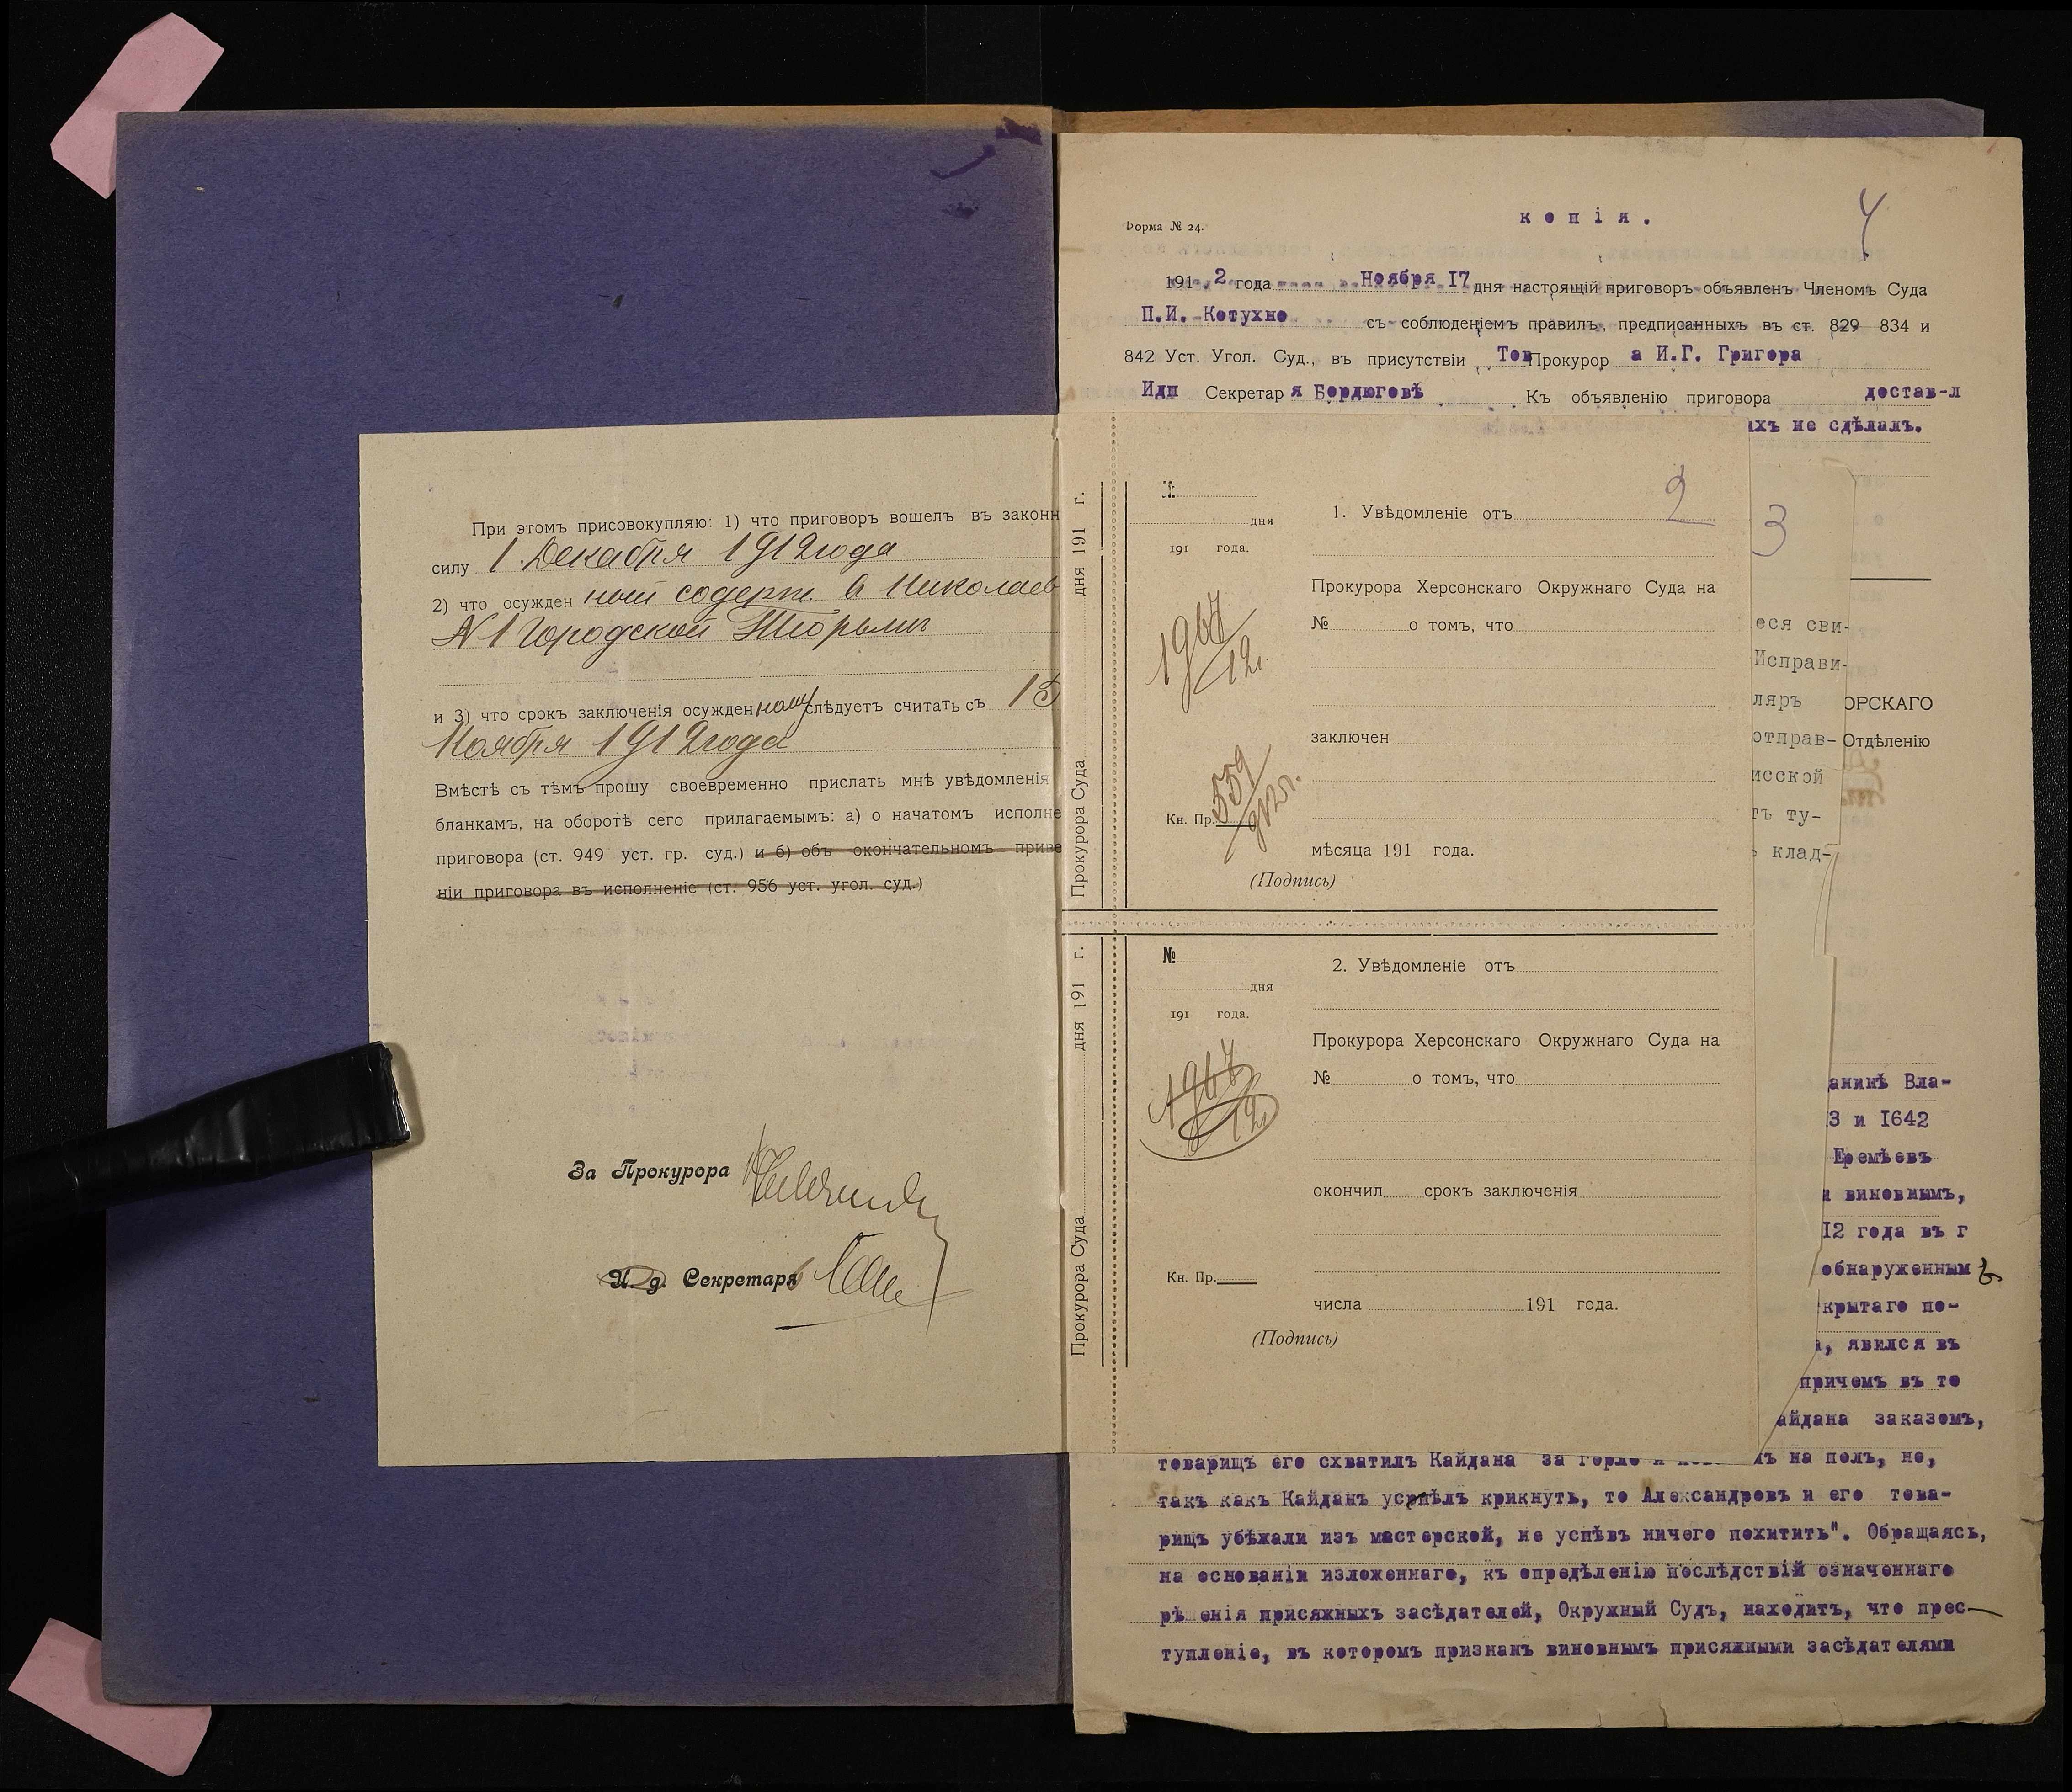 При этомъ присовокупляю: 1) что приговоръ вошелъ въ законн
силу 1 Декабря 1912 года
2) что осужден ный содерж. в Николаев
№ 1 Городской Тюрьмы
и 3) что срокъ заключенія осужден ному слѣдуетъ считать съ 13
Ноября 1912 года
Вмѣстѣ съ тѣмъ прошу своевременно прислать мнѣ увѣдомленія
бланкамъ, на оборотѣ сего прилагаемымъ: а) о начатомъ исполне
приговора (ст. 949 уст. гр. суд.) и б) объ окончательномъ приве
ніи приговора въ исполненіе (ст. 956 уст. угол. суд.)
За Прокурора
И. д. Секретаря
Прокурора Суда дня 191 г.
№
дня
191 года.
1967/12.
Кн. Пр. 559/912г.
2
1. Увѣдомленіе отъ
Прокурора Херсонскаго Окружнаго Суда на
№ о томъ, что
заключен
мѣсяца 191 года.
(Подпись)
Прокурора Суда дня 191 г.
№
дня
191 года.
1967/12
Кн. Пр.
2. Увѣдомленіе отъ
Прокурора Херсонскаго Окружнаго Суда на
№ о томъ, что
окончил срокъ заключенія
числа 191 года.
(Подпись)
3
еся сви-
Исправи-
ляръ
отправ-
исской
тъ ту-
ь клад-
4
Форма № 24.
копія.
191 2 года Ноября 17 дня настоящій приговоръ объявленъ Членомъ Суда
П.И. Котухно съ соблюденіемъ правилъ, предписанныхъ въ ст. 829 834 и
842 Уст. Угол. Суд., въ присутствіи Тов Прокурор а И.Г. Григора
Идп Секретар я Бордюговѣ Къ объявленію приговора достав-л
ихъ не сдѣлалъ.
ОРСКАГО
Отдѣленію
анинѣ Вла-
3 и 1642
Еремѣевъ
и виновнымъ,
12 года въ г
обнаруженным
крытаго по-
а, явился въ
причемъ въ то
айдана заказомъ,
товарищъ его схватилъ Кайдана за горло и ъ на полъ, но,
такъ какъ Кайданъ успѣлъ крикнуть, то Александровъ и его това-
рищъ убѣжали изъ мастерской, не успѣвъ ничего похитить". Обращаясь,
на основаніи изложеннаго, къ опредѣленію послѣдствій означеннаго
рѣшенія присяжныхъ засѣдателей, Окружный Судъ, находитъ, что прес-
тупленіе, въ которомъ признанъ виновнымъ присяжными засѣдателями